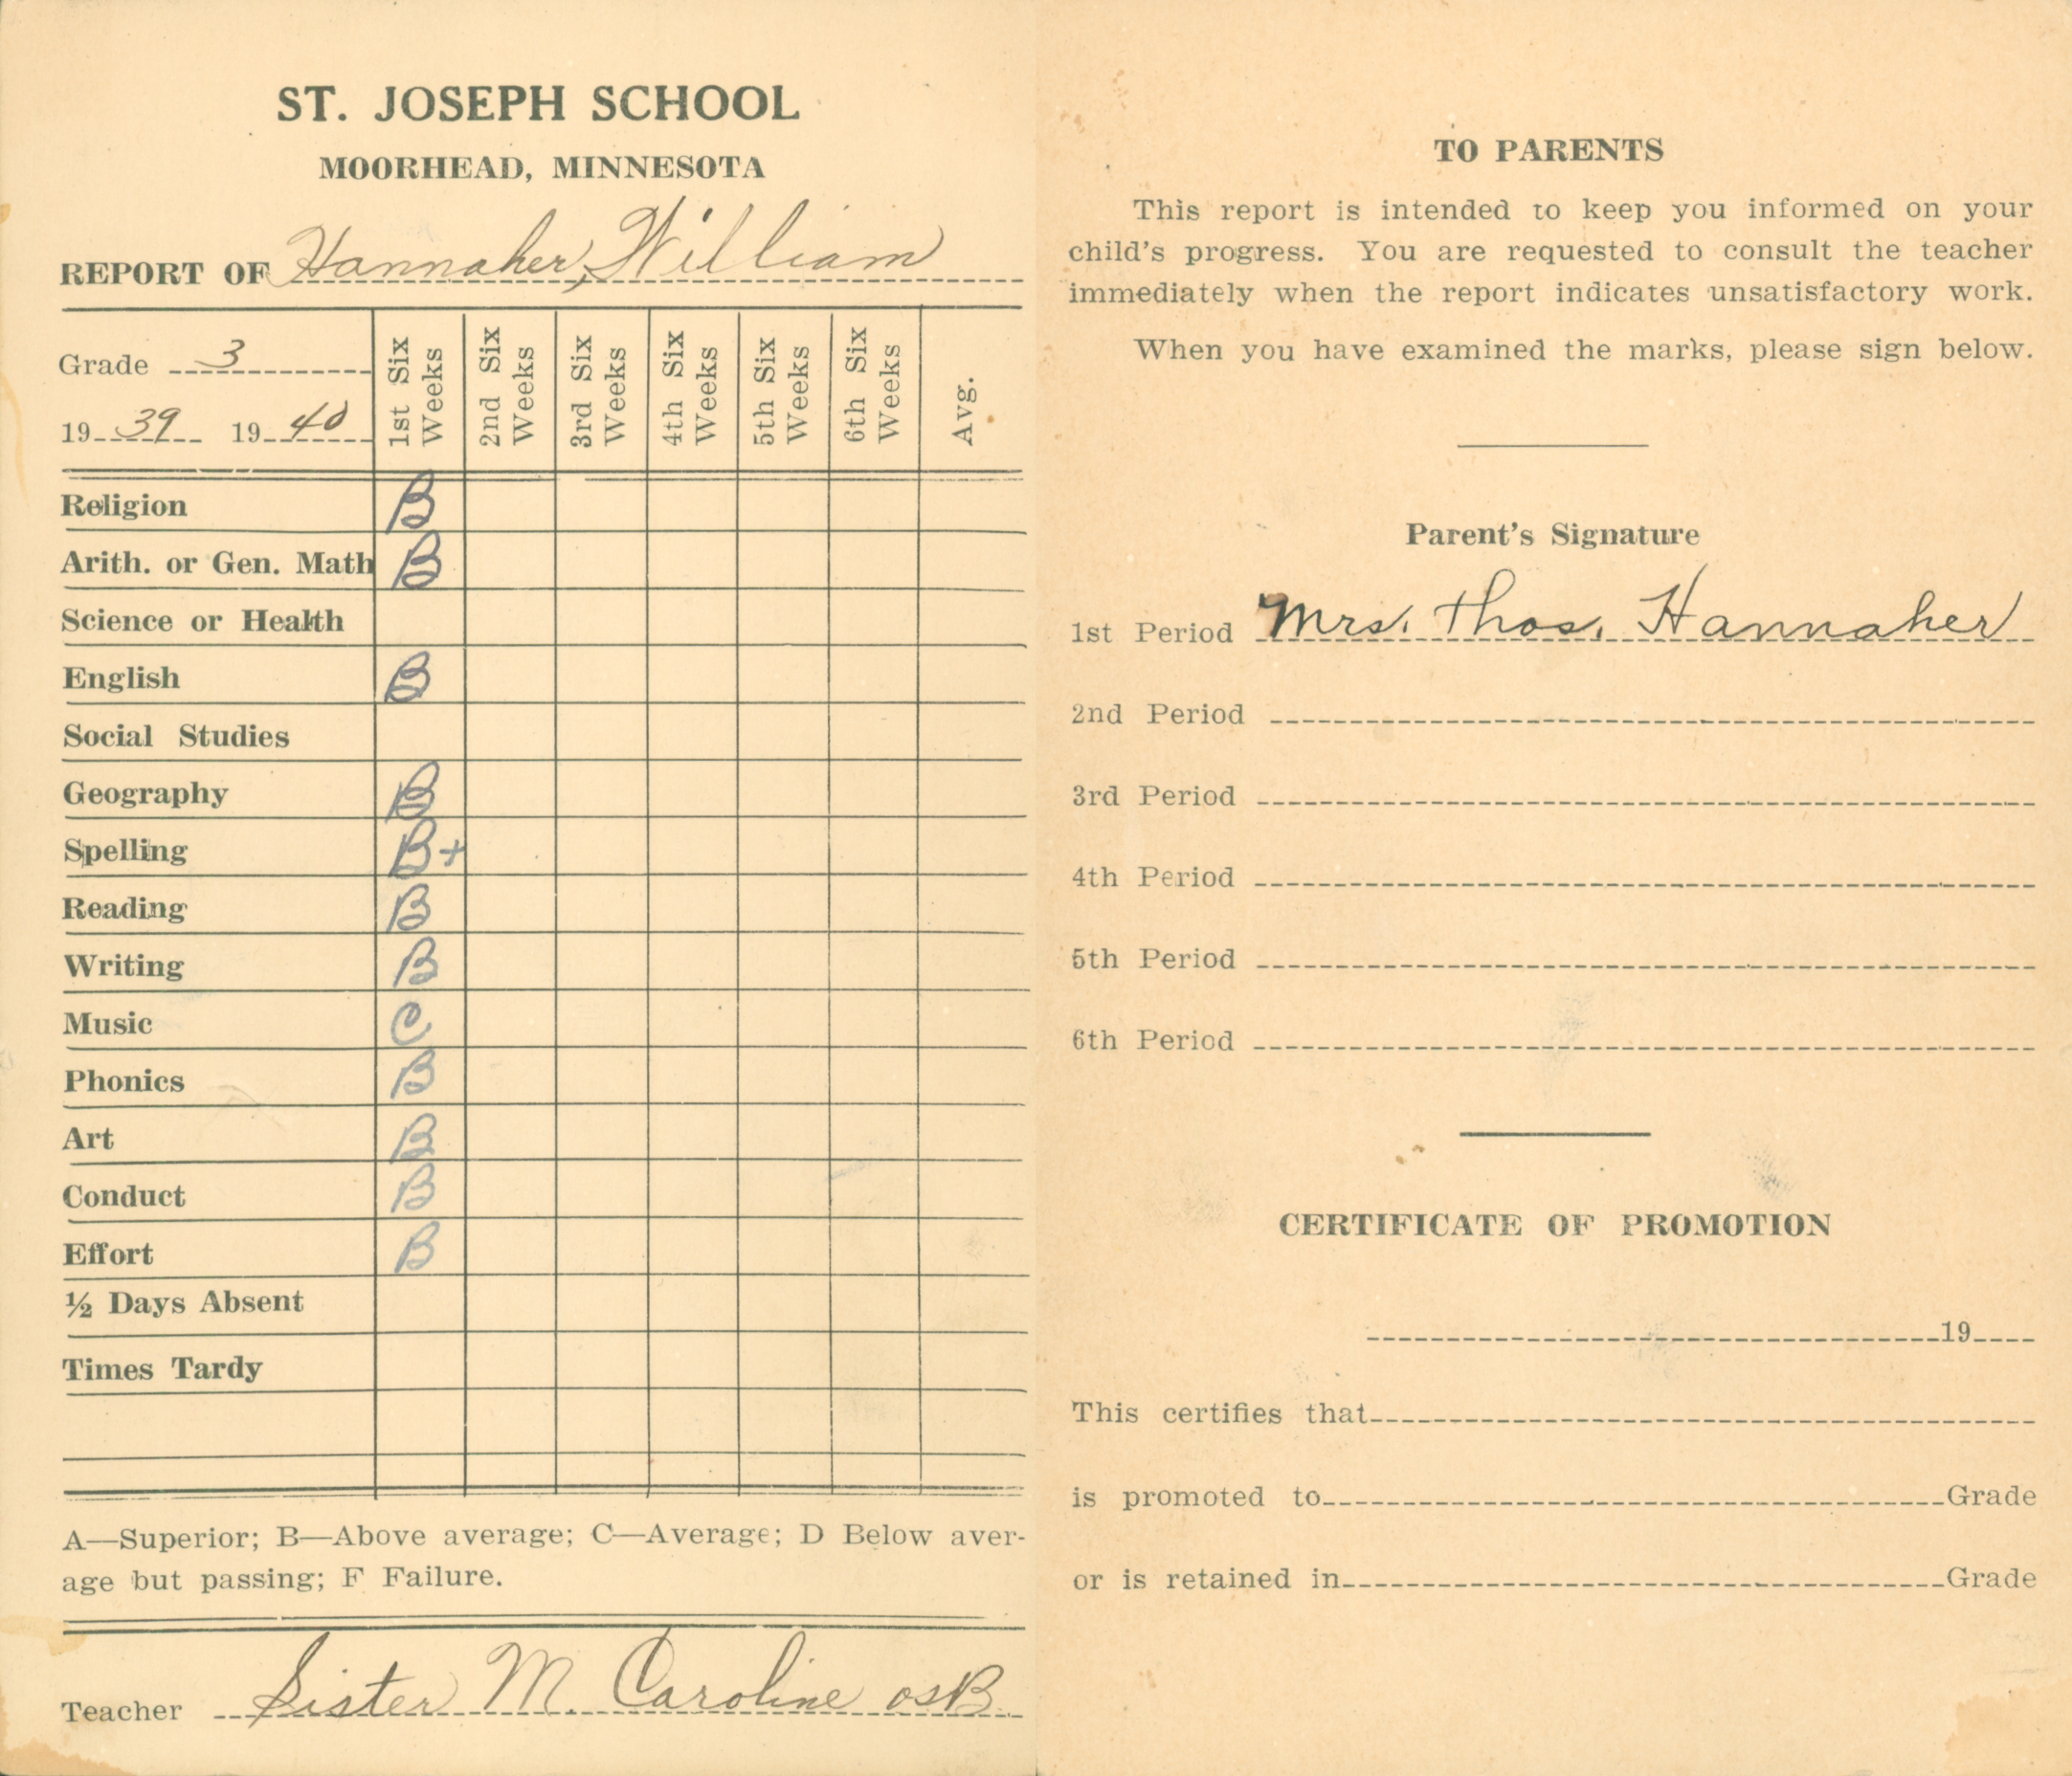 ST. JOSEPH SCHOOL
MOORHEAD, MINNESOTA
REPORT OF Hannaher, William
Grade 3
19 39 19 40
1st Six Weeks
2nd Six Weeks
3rd Six Weeks
4th Six Weeks
5th Six Weeks
6th Six Weeks
Avg.
Religion B
Arith. or Gen. Math B
Science or Health
English B
Social Studies
Geography B
Spelling B+
Reading B
Writing B
Music C
Phonics B
Art B
Conduct B
Effort B
½ Days Absent
Times Tardy
A—Superior; B—Above average; C—Average; D Below aver-
age but passing; F Failure.
Teacher Sister M. Caroline OSB
TO PARENTS
This report is intended to keep you informed on your
child's progress. You are requested to consult the teacher
immediately when the report indicates unsatisfactory work.
When you have examined the marks, please sign below.
Parent's Signature
1st Period Mrs. Thos. Hannaher
2nd Period
3rd Period
4th Period
5th Period
6th Period
CERTIFICATE OF PROMOTION
19
This certifies that
is promoted to Grade
or is retained in Grade